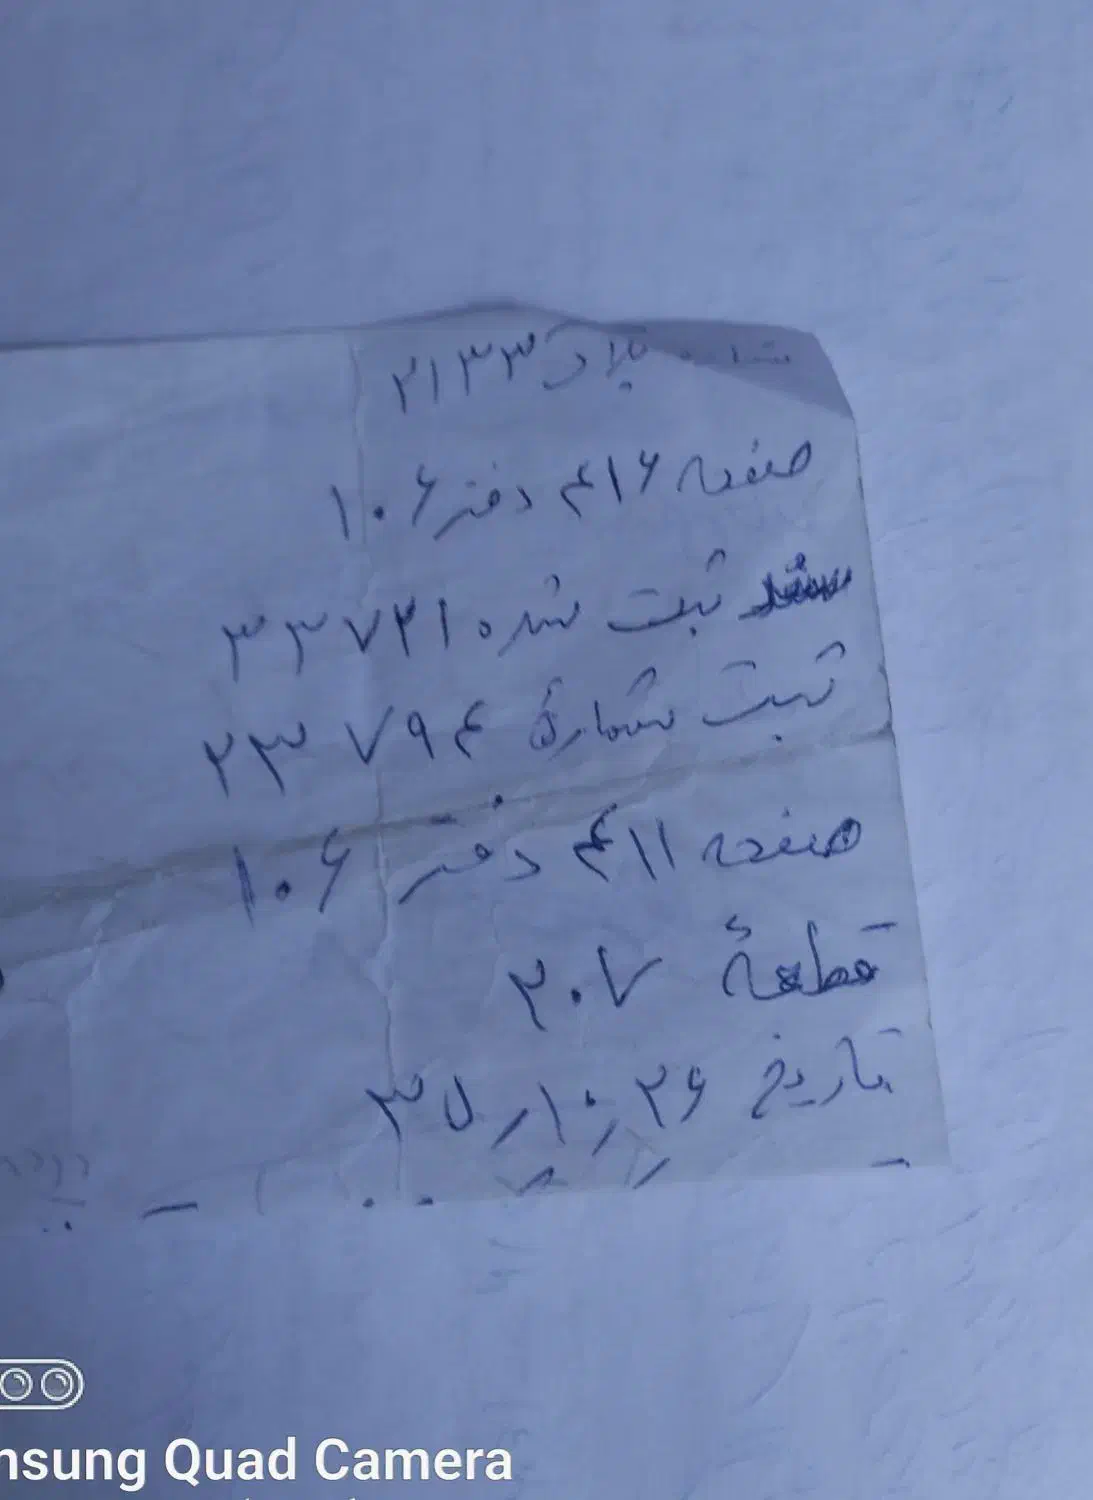 شماره پلاک ۲۱۳۳
صفحه ۴۱۶ دفتر ۱۰۶
ثبت شده ۳۳۷۲۱
ثبت شمارهٔ ۲۳۷۹۴
صفحه ۴۱۱ دفتر ۱۰۶
قطعهٔ ۲۰۷
تاریخ ۲۶ر۱۰ر۳۵
nsung Quad Camera